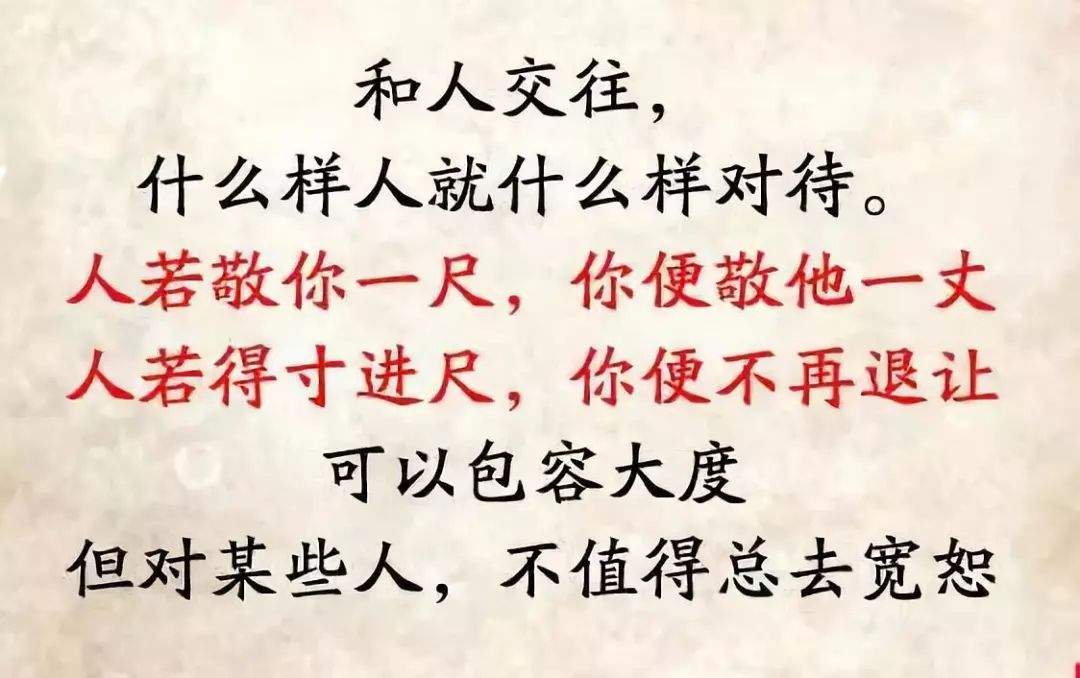 和人交往，
什么样人就什么样对待。
人若敬你一尺，你便敬他一丈
人若得寸进尺，你便不再退让
可以包容大度
但对某些人，不值得总去宽恕